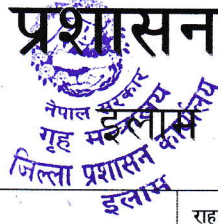 प्रशासन
इलाम
नेपाल सरकार
गृह मन्त्रालय
जिल्ला प्रशासन कार्यालय
इलाम
राह